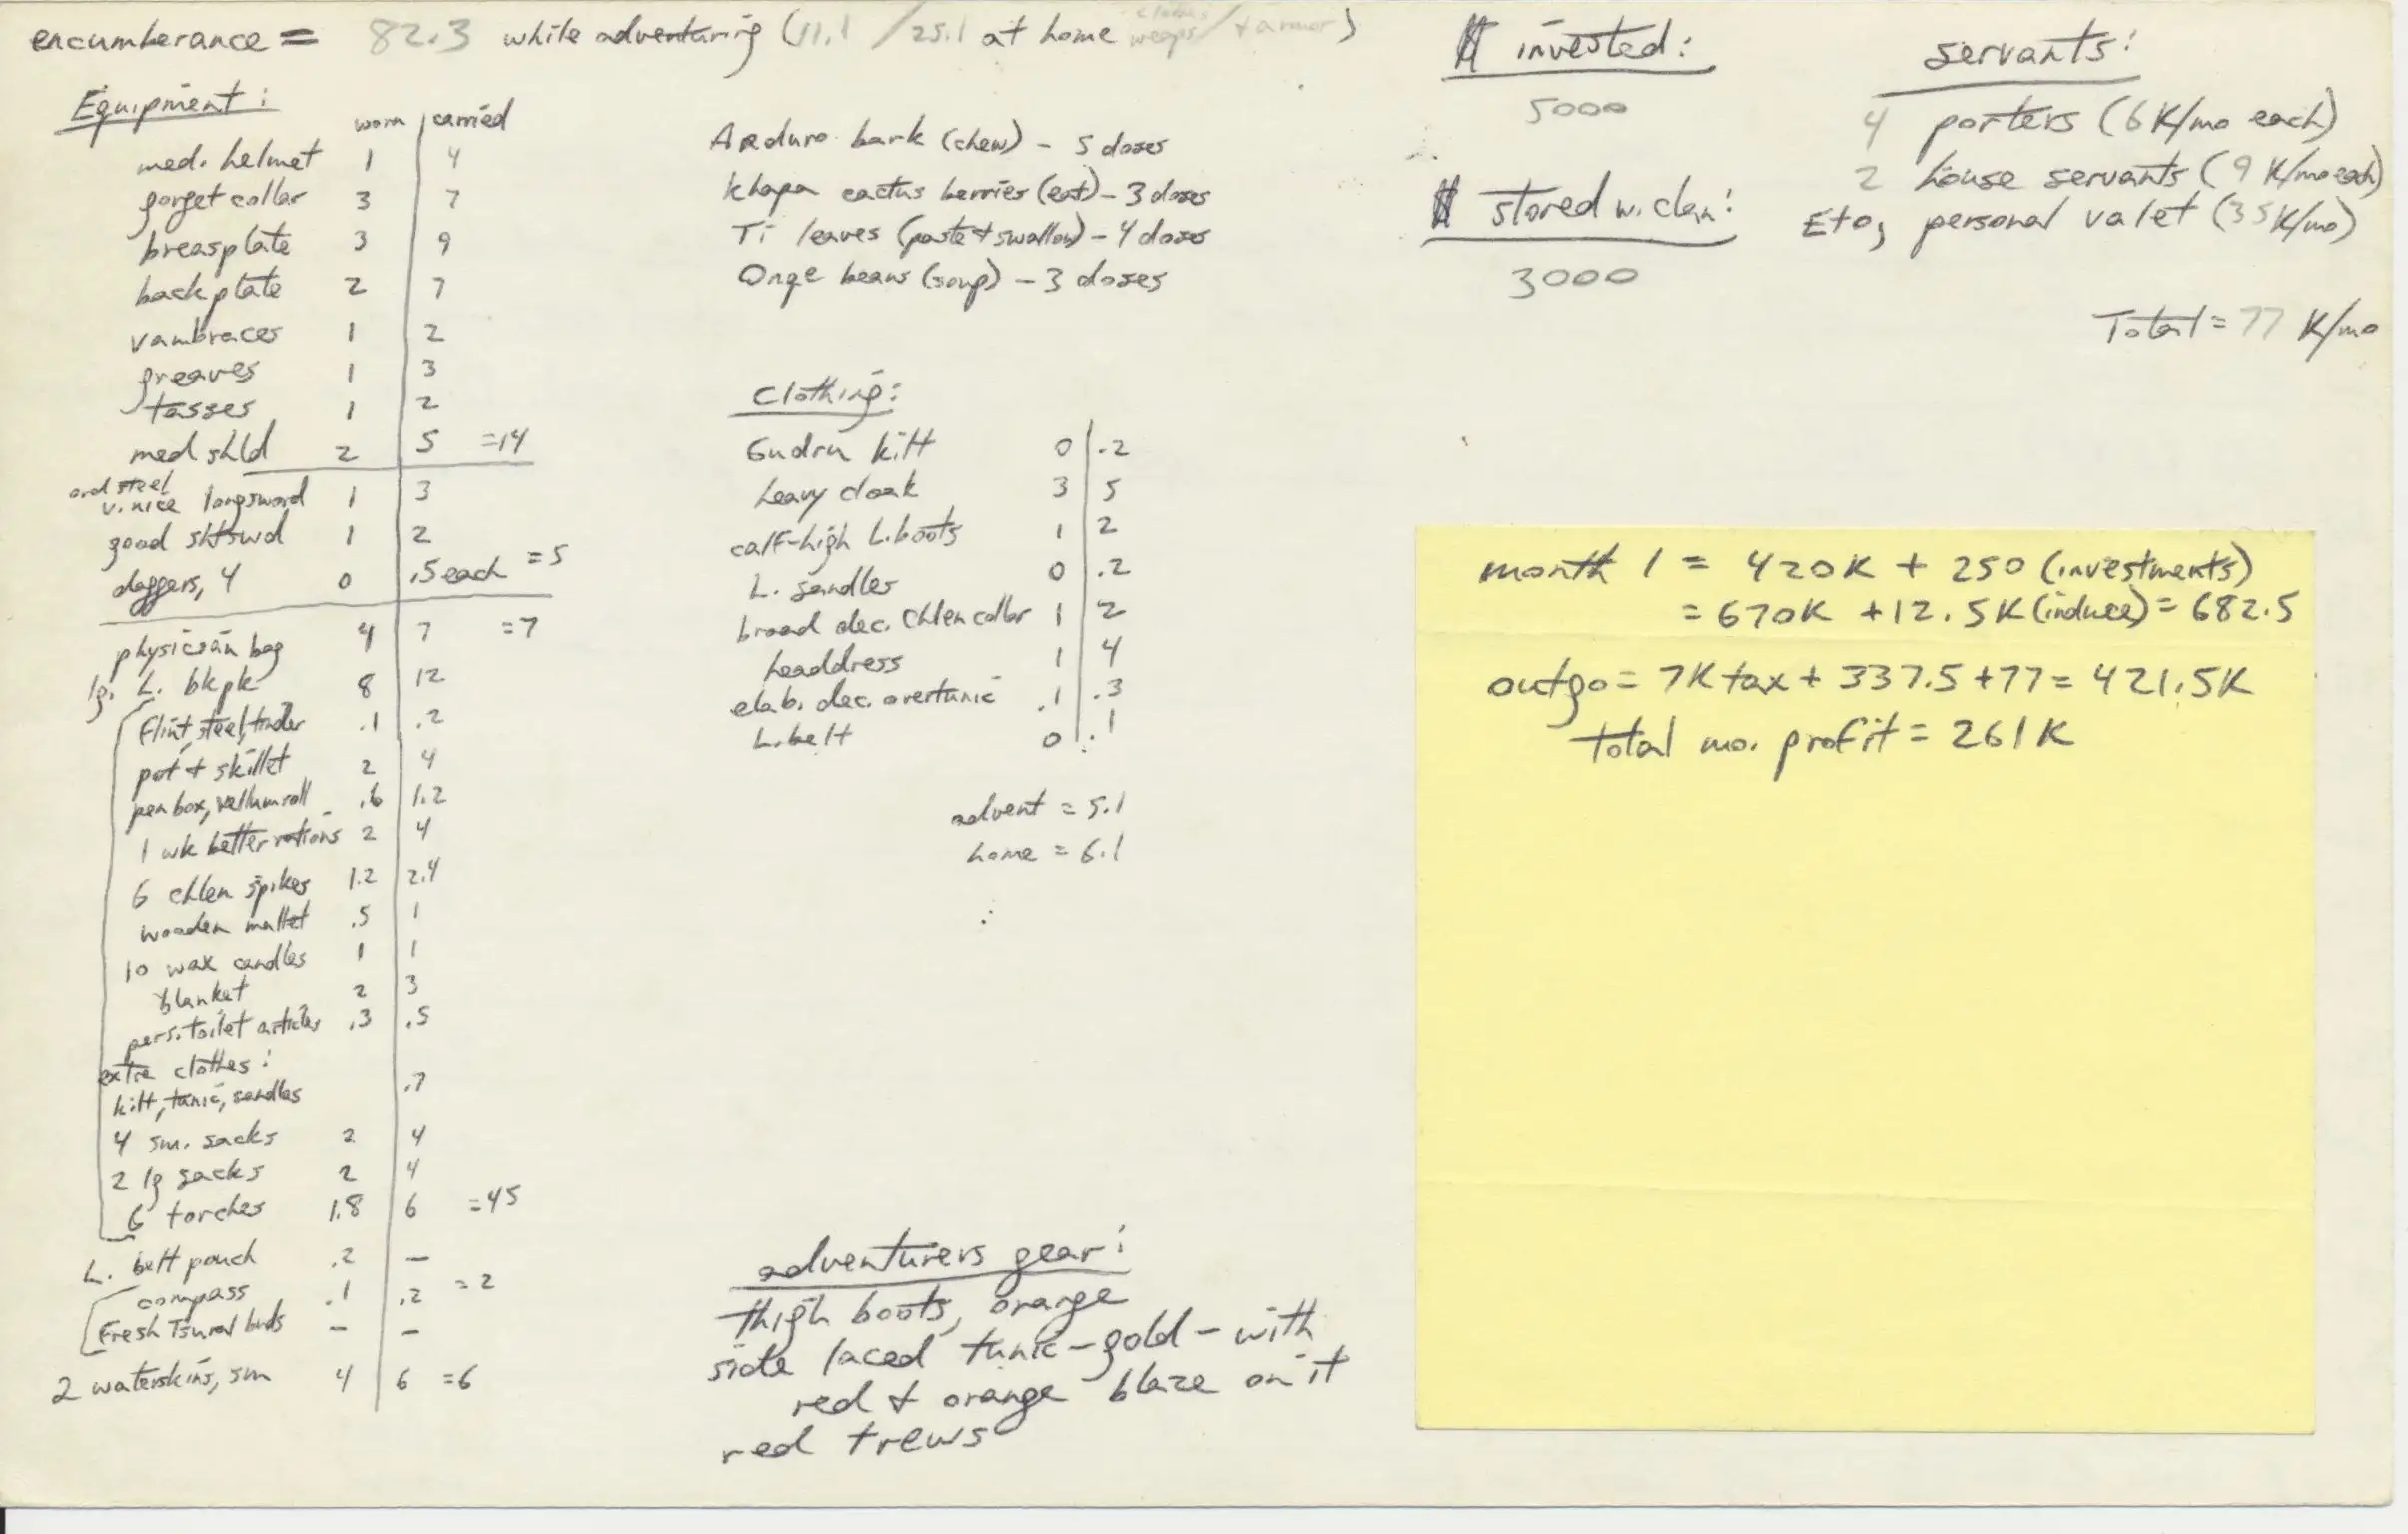 encumberance = 82.3 while adventuring (11.1 / 25.1 at home weaps / + armor)
Equipment:
worn | carried
med. helmet 1 4
gorget collar 3 7
breasplate 3 9
backplate 2 7
vambraces 1 2
greaves 1 3
tasses 1 2
med shld 2 5 =14
ord steel
v. nice longsword 1 3
good shtswd 1 2
daggers, 4 0 .5 each =5
physician bag 4 7 =7
lg. L. bkpk 8 12
flint, steel, tinder .1 .2
pot + skillet 2 4
pen box, vellum roll .6 1.2
1 wk better rations 2 4
6 chlen spikes 1.2 2.4
wooden mallet .5 1
10 wax candles 1 1
blanket 2 3
pers. toilet articles .3 .5
extra clothes:
kilt, tunic, sandles .7
4 sm. sacks 2 4
2 lg sacks 2 4
6 torches 1.8 6 =45
L. belt pouch .2 —
compass .1 .2 =2
Fresh Tsural buds — —
2 waterskins, sm 4 6 =6
Arduro bark (chew) - 5 doses
Khapa cactus berries (eat) - 3 doses
Ti leaves (paste + swallow) - 4 doses
Onqe beans (soup) - 3 doses
Clothing:
Gudru kilt 0 .2
heavy cloak 3 5
calf-high L. boots 1 2
L. sandles 0 .2
broad dec. Chlen collar 1 2
headdress 1 4
elab. dec. overtunic .1 .3
L. belt 0 .1
advent = 5.1
home = 6.1
adventurers gear:
thigh boots, orange
side laced tunic - gold - with
red + orange blaze on it
red trews
$ invested:
5000
$ stored w. clan:
3000
servants:
4 porters (6 K/mo each)
2 house servants (9 K/mo each)
Eto, personal valet (35 K/mo)
Total = 77 K/mo
month 1 = 420K + 250 (investments)
= 670K + 12.5K (induce) = 682.5
outgo = 7K tax + 337.5 + 77 = 421.5K
total mo. profit = 261K